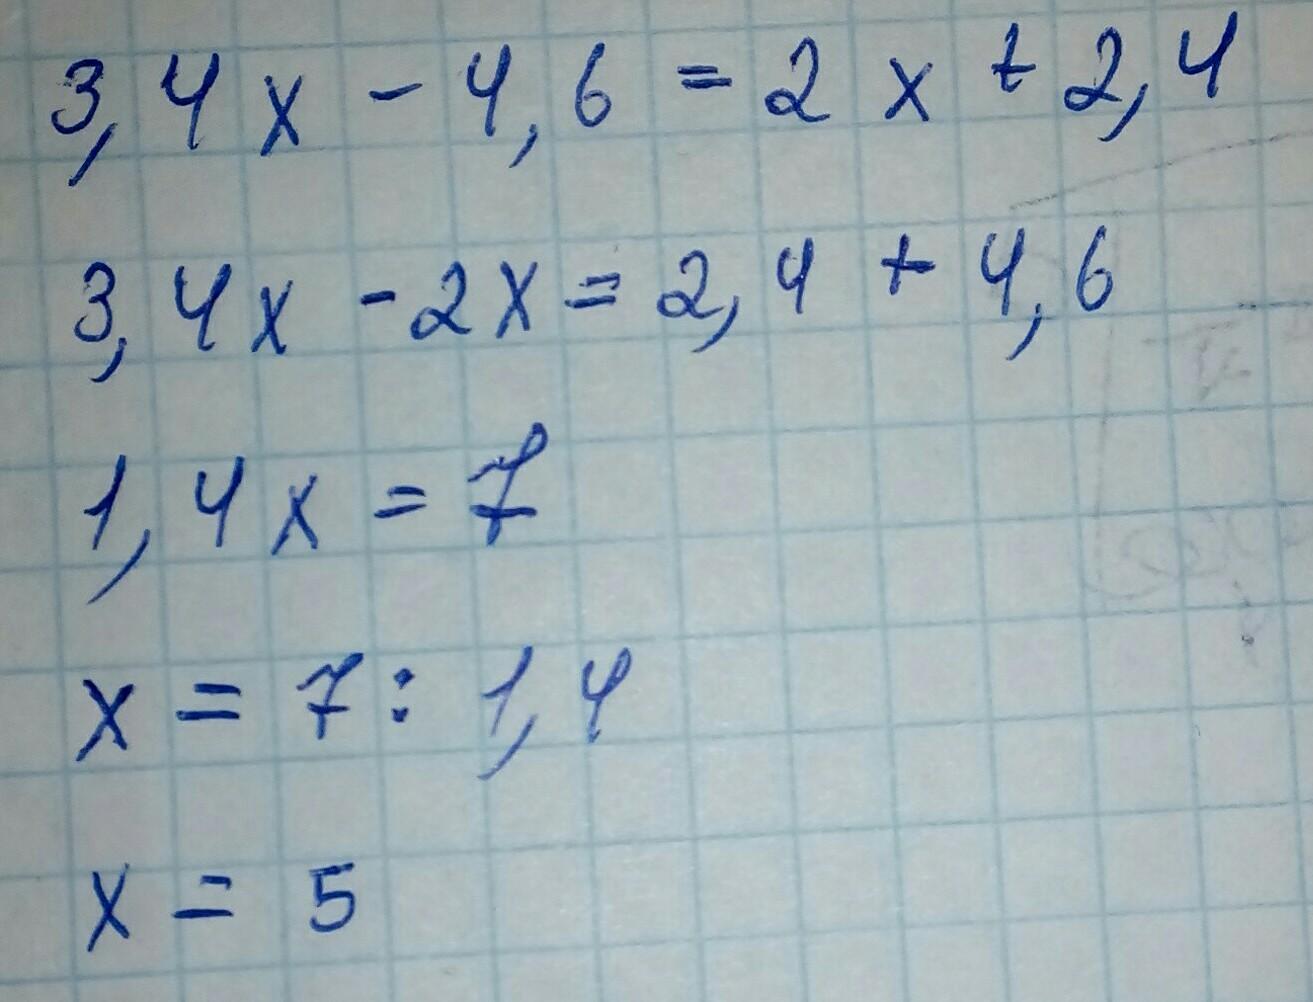 3,4x - 4,6 = 2x + 2,4
3,4x - 2x = 2,4 + 4,6
1,4x = 7
x = 7 : 1,4
x = 5